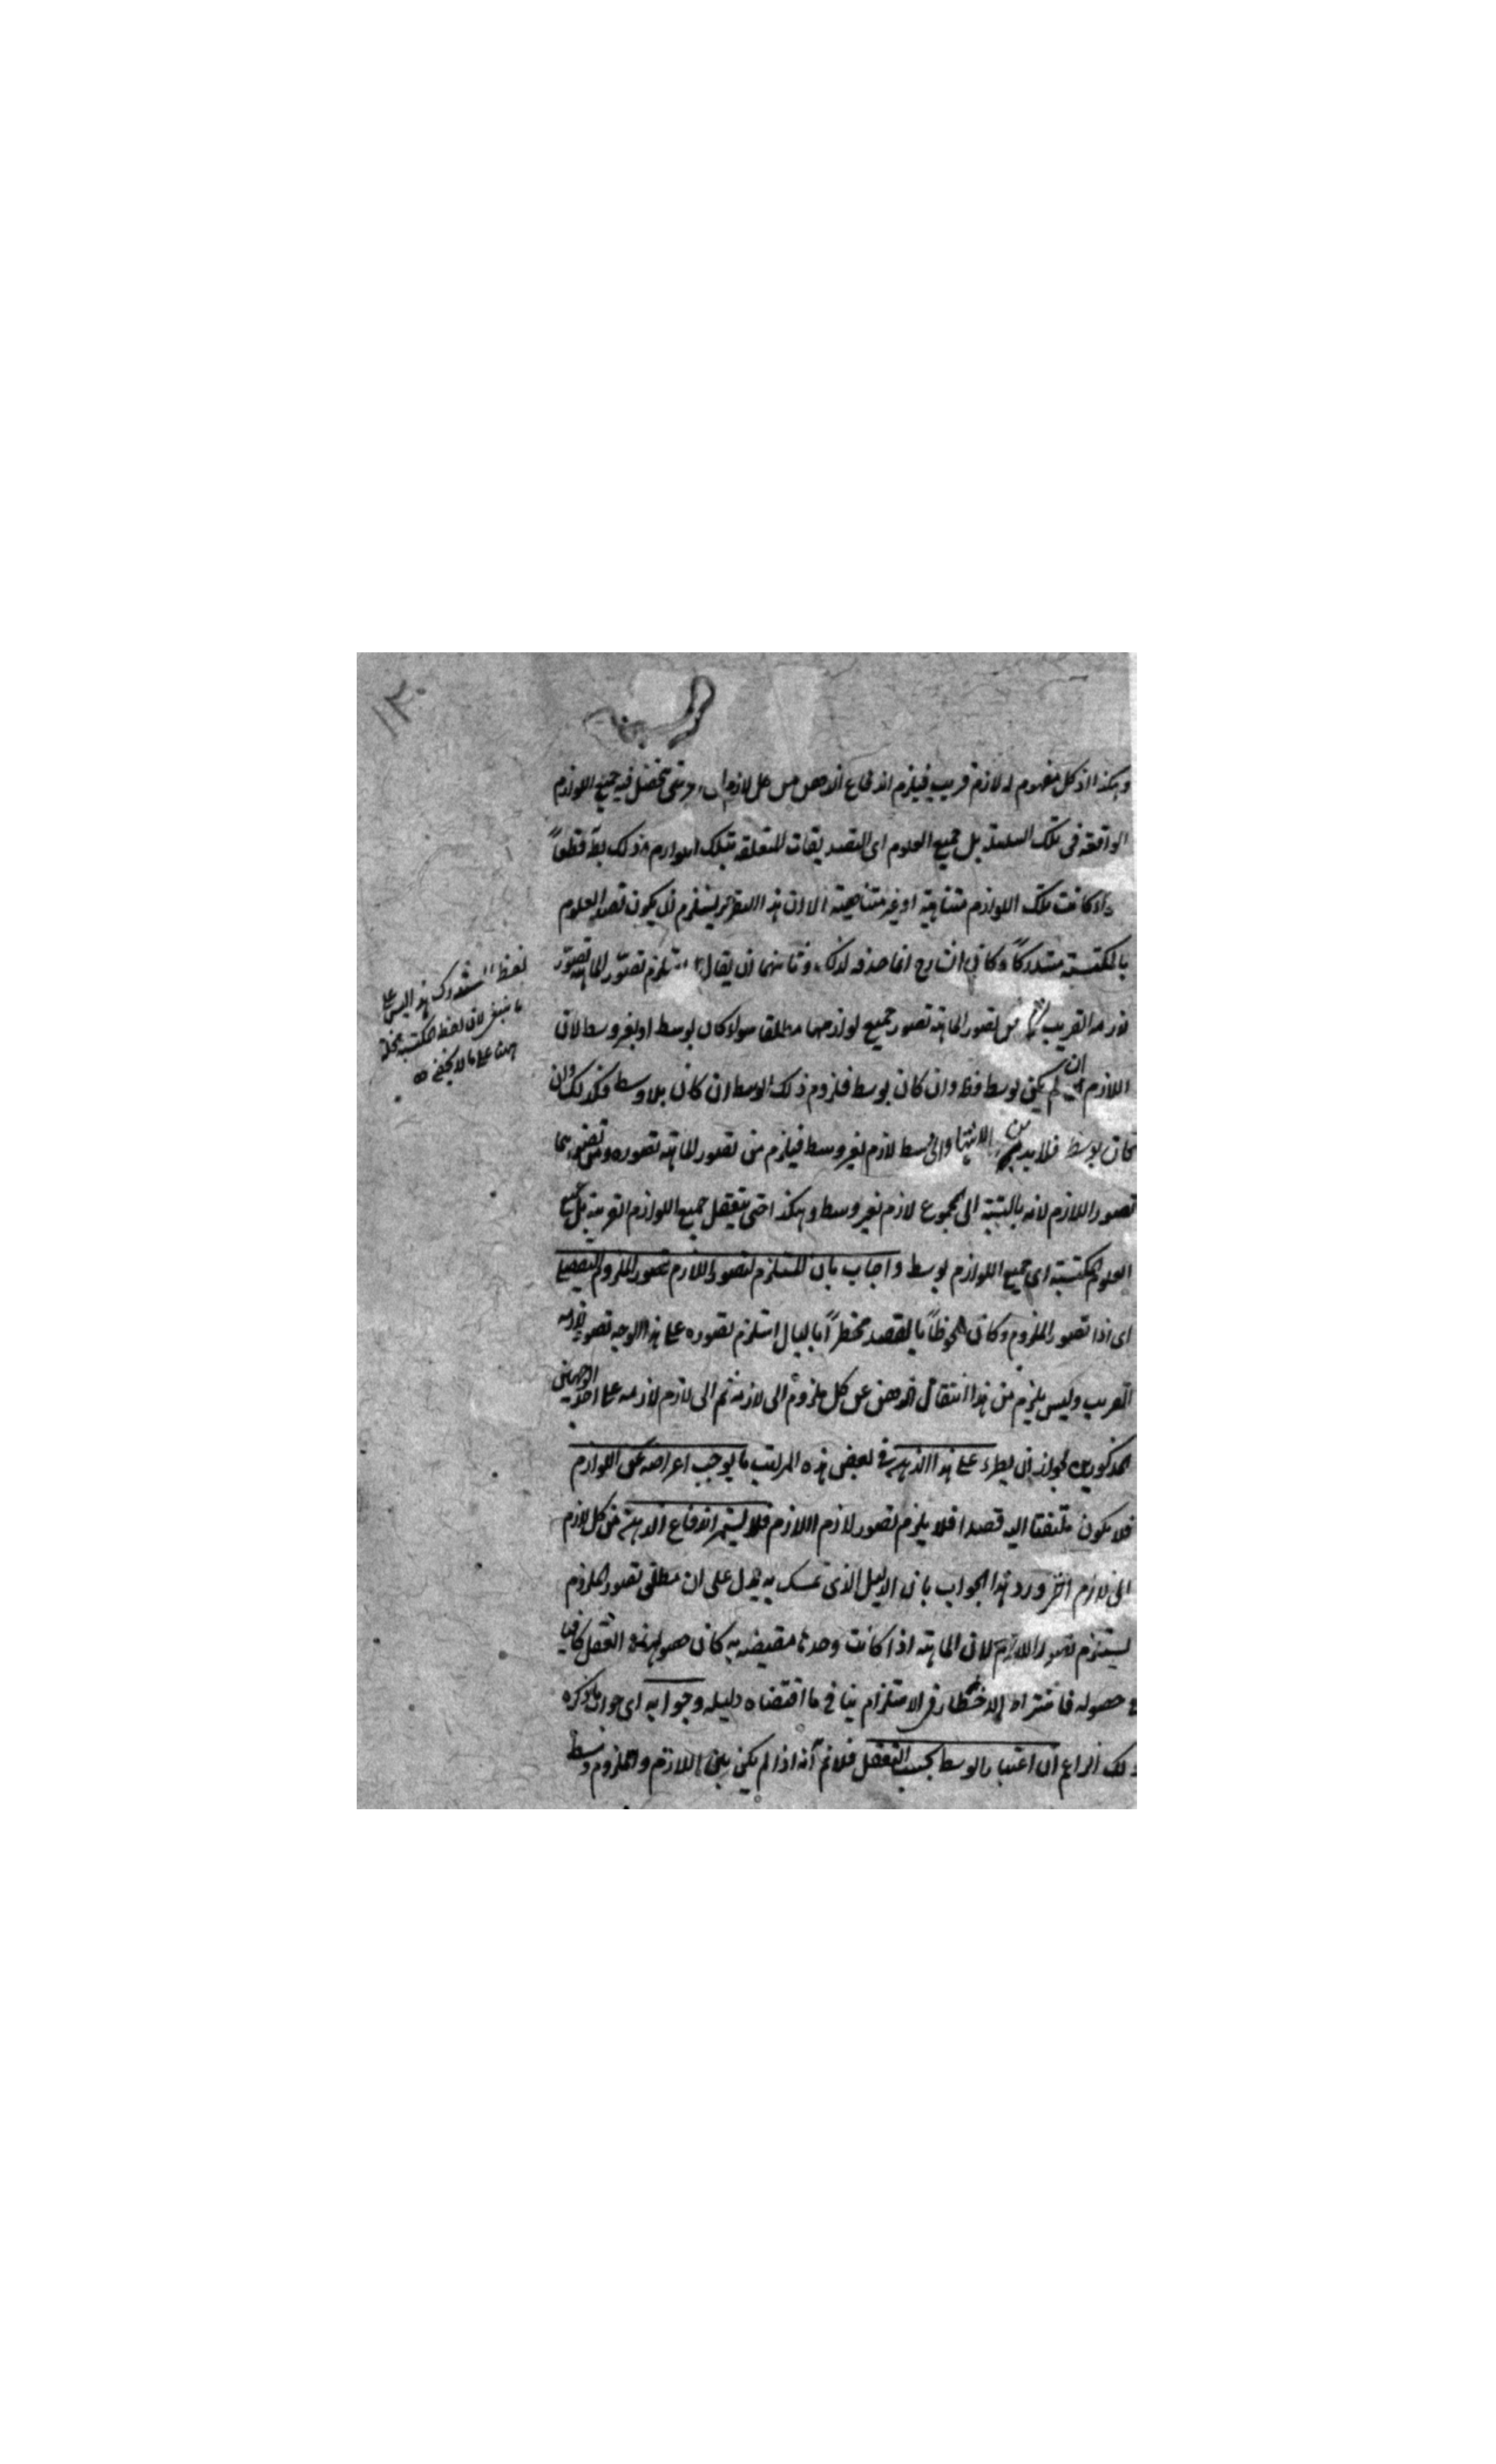 ١٣٠
وهكذا اذ كل مفهوم له لازم قريب فيلزم اندفاع الذهن من كل لازم الى اخر حتى تحصل فيه جميع اللوازم
الواقعة فى تلك السلسلة بل جميع العلوم اى التصديقات المتعلقة بتلك اللوازم وذلك بط قطعاً
كانت تلك اللوازم متناهية او غير متناهية الا ان هذا التقرير يستلزم ان يكون تقييد العلوم
بالمكتسبة مستدركاً وكان الشارح انما حذفه لذلك وثانيهما ان يقال استلزم تصوّر الماهية تصوّر
لازمه القريب من تصور الماهية تصور جميع لوازمها مطلقا سواء كان بوسط او بغير وسط لان
اللازم ان لم يكن بوسط فظ وان كان بوسط فلزوم ذلك الوسط ان كان بلا وسط فكذلك وان
كان بوسط فلابد من الانتهاء الى وسط لازم بغير وسط فيلزم من تصور الماهية تصوره ومن تصورهما
تصور اللازم لانه بالنسبة الى المجموع لازم بغير وسط وهكذا حتى يتعقل جميع اللوازم القريبة بل جميع
العلوم المكتسبة اى جميع اللوازم بوسط واجاب بان المستلزم لتصور اللازم تصور الملزوم التفصيلى
اى اذا تصور الملزوم وكان ملحوظاً بالقصد مخطراً بالبال استلزم تصوره على هذا الوجه تصور لازمه
القريب وليس يلزم من هذا انتقال الذهن عن كل ملزوم الى لازمه ثم الى لازم لازمه على احد الوجهين
المذكورين لجواز ان يطرء على هذا الذهن فى بعض هذه المراتب ما يوجب اعراضه عن اللوازم
فلا يكون ملتفتا اليه قصدا فلا يلزم تصور لازم اللازم فلا يستمر اندفاع الذهن من كل لازم
الى لازم اخر ورد هذا الجواب بان الدليل الذى تمسك به يدل على ان مطلق تصور الملزوم
يستلزم تصور اللازم لان الماهية اذا كانت وحدها مقتضية به كان حصولها فى العقل كافيا
فى حصوله فاشتراط الاخطار فى الاستلزام ينافى ما اقتضاه دليله وجوابه اى جواب ما ذكره
ذلك الزاعم ان اعتبار الوسط بحسب التعقل فلانم انه اذا لم يكن بين اللازم والملزوم وسط
لفظ المستدرك هذا ليس على
ما ينبغى لان لفظ المكتسبة
هنا على ما لا يخفى